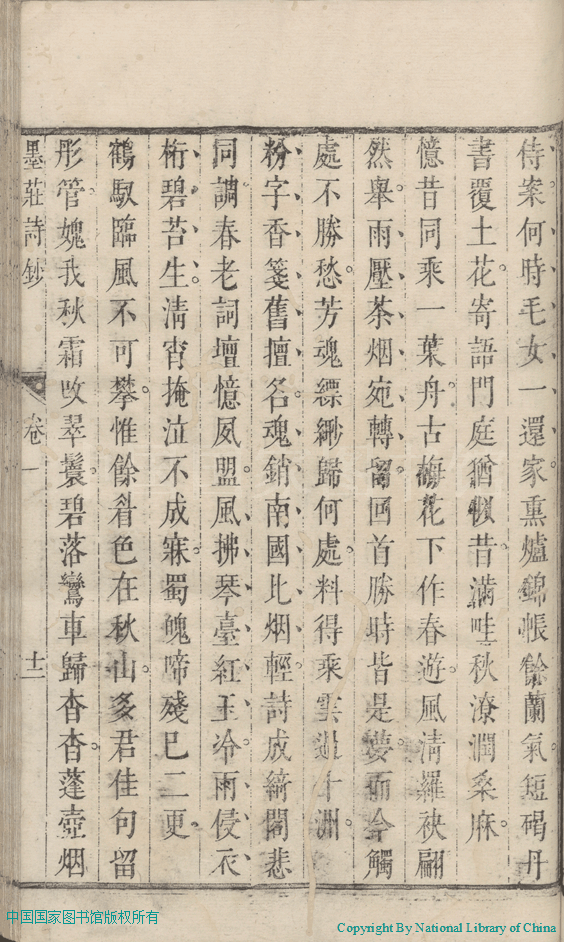 侍案何時毛女一還家熏爐錦帳餘蘭氣短碣丹
書覆土花寄語門庭猶似昔滿畦秋潦潤桑麻
憶昔同乘一葉舟古梅花下作春遊風淸羅袂翩
然舉雨壓茶烟宛轉留回首勝時皆是夢而今觸
處不勝愁芳魂縹緲歸何處料得乘雲過十洲
粉字香箋舊擅名魂銷南國比烟輕詩成綺閣悲
同調春老詞壇憶夙盟風拂琴臺紅玉冷雨侵衣
桁碧苔生淸宵掩泣不成寐蜀魄啼殘已二更
鶴馭臨風不可攀惟餘眉色在秋山多君佳句留
彤管媿我秋霜改翠鬟碧落鸞車歸杳杳蓬壺烟
墨莊詩鈔 卷一 十二
中国国家图书馆版权所有
Copyright By National Library of China